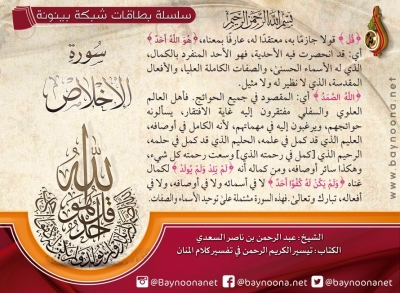 سلسلة بطاقات شبكة بينونة
بسم الله الرحمن الرحيم
سورة
الإخلاص
﴿قُلْ﴾ قولا جازمًا به، معتقدًا له، عارفًا بمعناه، ﴿هُوَ اللَّهُ أَحَدٌ﴾
أي: قد انحصرت فيه الأحدية، فهو الأحد المنفرد بالكمال،
الذي له الأسماء الحسنى، والصفات الكاملة العليا، والأفعال
المقدسة، الذي لا نظير له ولا مثيل.
﴿اللَّهُ الصَّمَدُ﴾ أي: المقصود في جميع الحوائج. فأهل العالم
العلوي والسفلي مفتقرون إليه غاية الافتقار، يسألونه
حوائجهم، ويرغبون إليه في مهماتهم، لأنه الكامل في أوصافه،
العليم الذي قد كمل في علمه، الحليم الذي قد كمل في حلمه،
الرحيم الذي [كمل في رحمته الذي] وسعت رحمته كل شيء،
وهكذا سائر أوصافه، ومن كماله أنه ﴿لَمْ يَلِدْ وَلَمْ يُولَدْ﴾ لكمال
غناه ﴿وَلَمْ يَكُنْ لَهُ كُفُوًا أَحَدٌ﴾ لا في أسمائه ولا في أوصافه، ولا في
أفعاله، تبارك وتعالى. فهذه السورة مشتملة على توحيد الأسماء والصفات.
الشيخ: عبد الرحمن بن ناصر السعدي
الكتاب: تيسير الكريم الرحمن في تفسير كلام المنان
@Baynoonanet @Baynoonanet @Baynoonanet
www.baynoona.net
www.baynoona.net